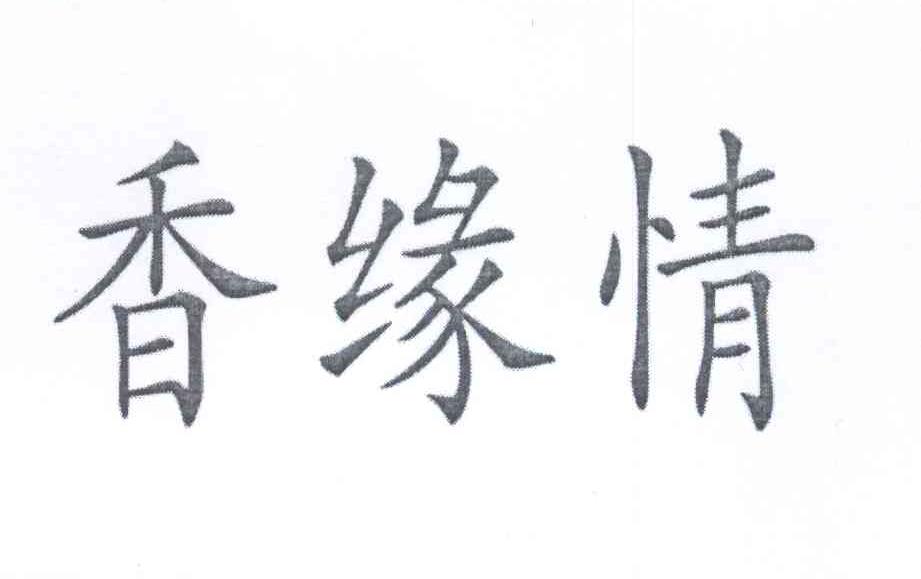 香缘情